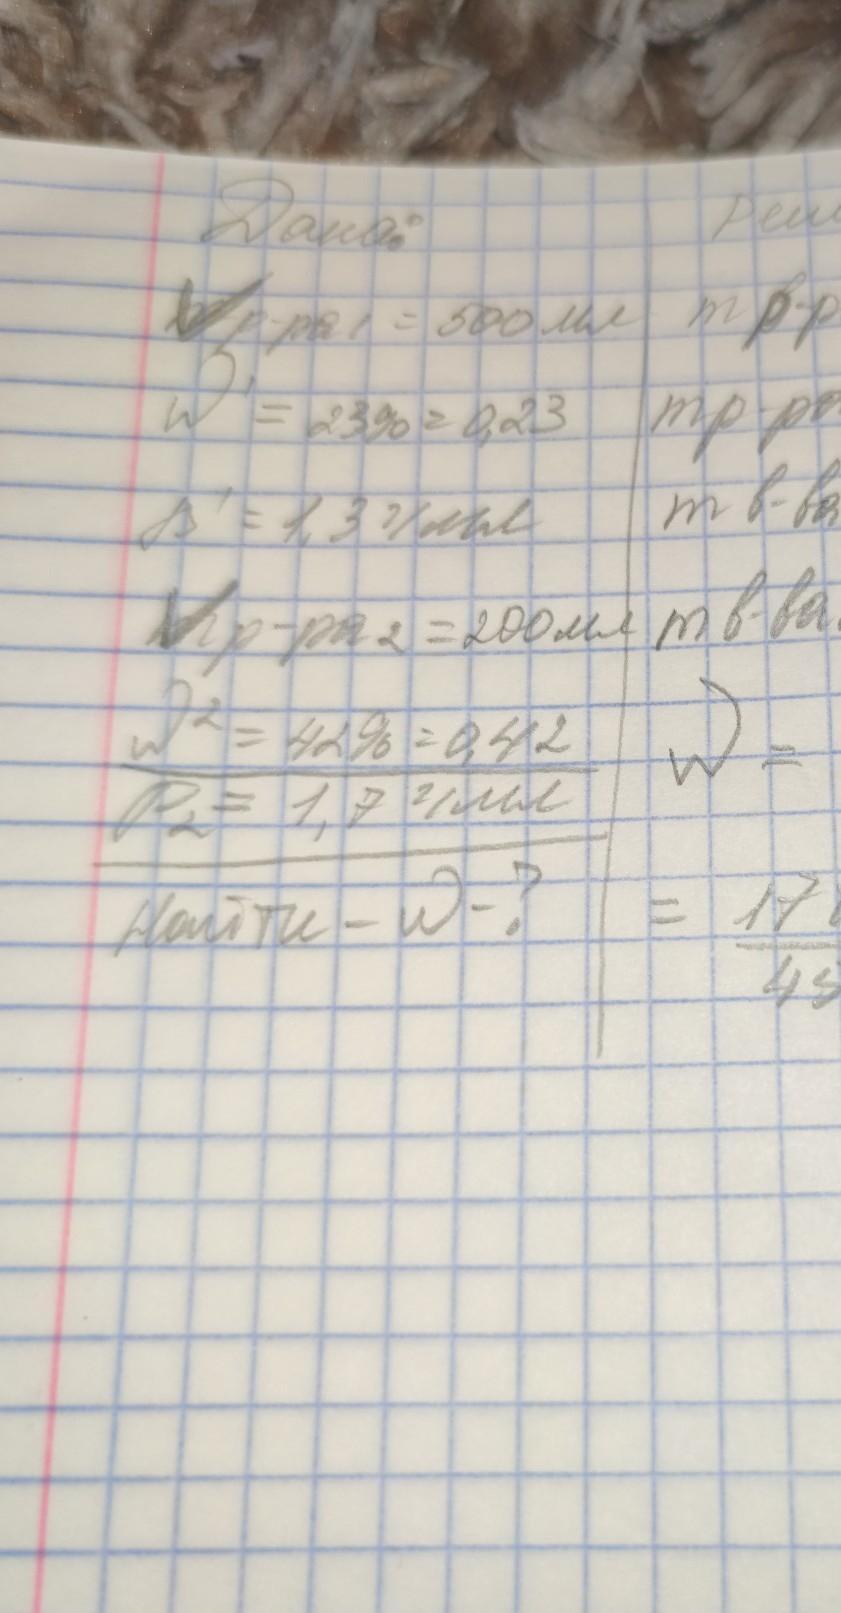 Дано:
Vр-ра1 = 500 мл
W1 = 23% = 0,23
P1 = 1,3 г/мл
Vр-ра2 = 200 мл
W2 = 42% = 0,42
P2 = 1,7 г/мл
Найти - W - ?
Реш
m р-р
m р-ра
m в-ва
m в-ва.
W =
= 17
45